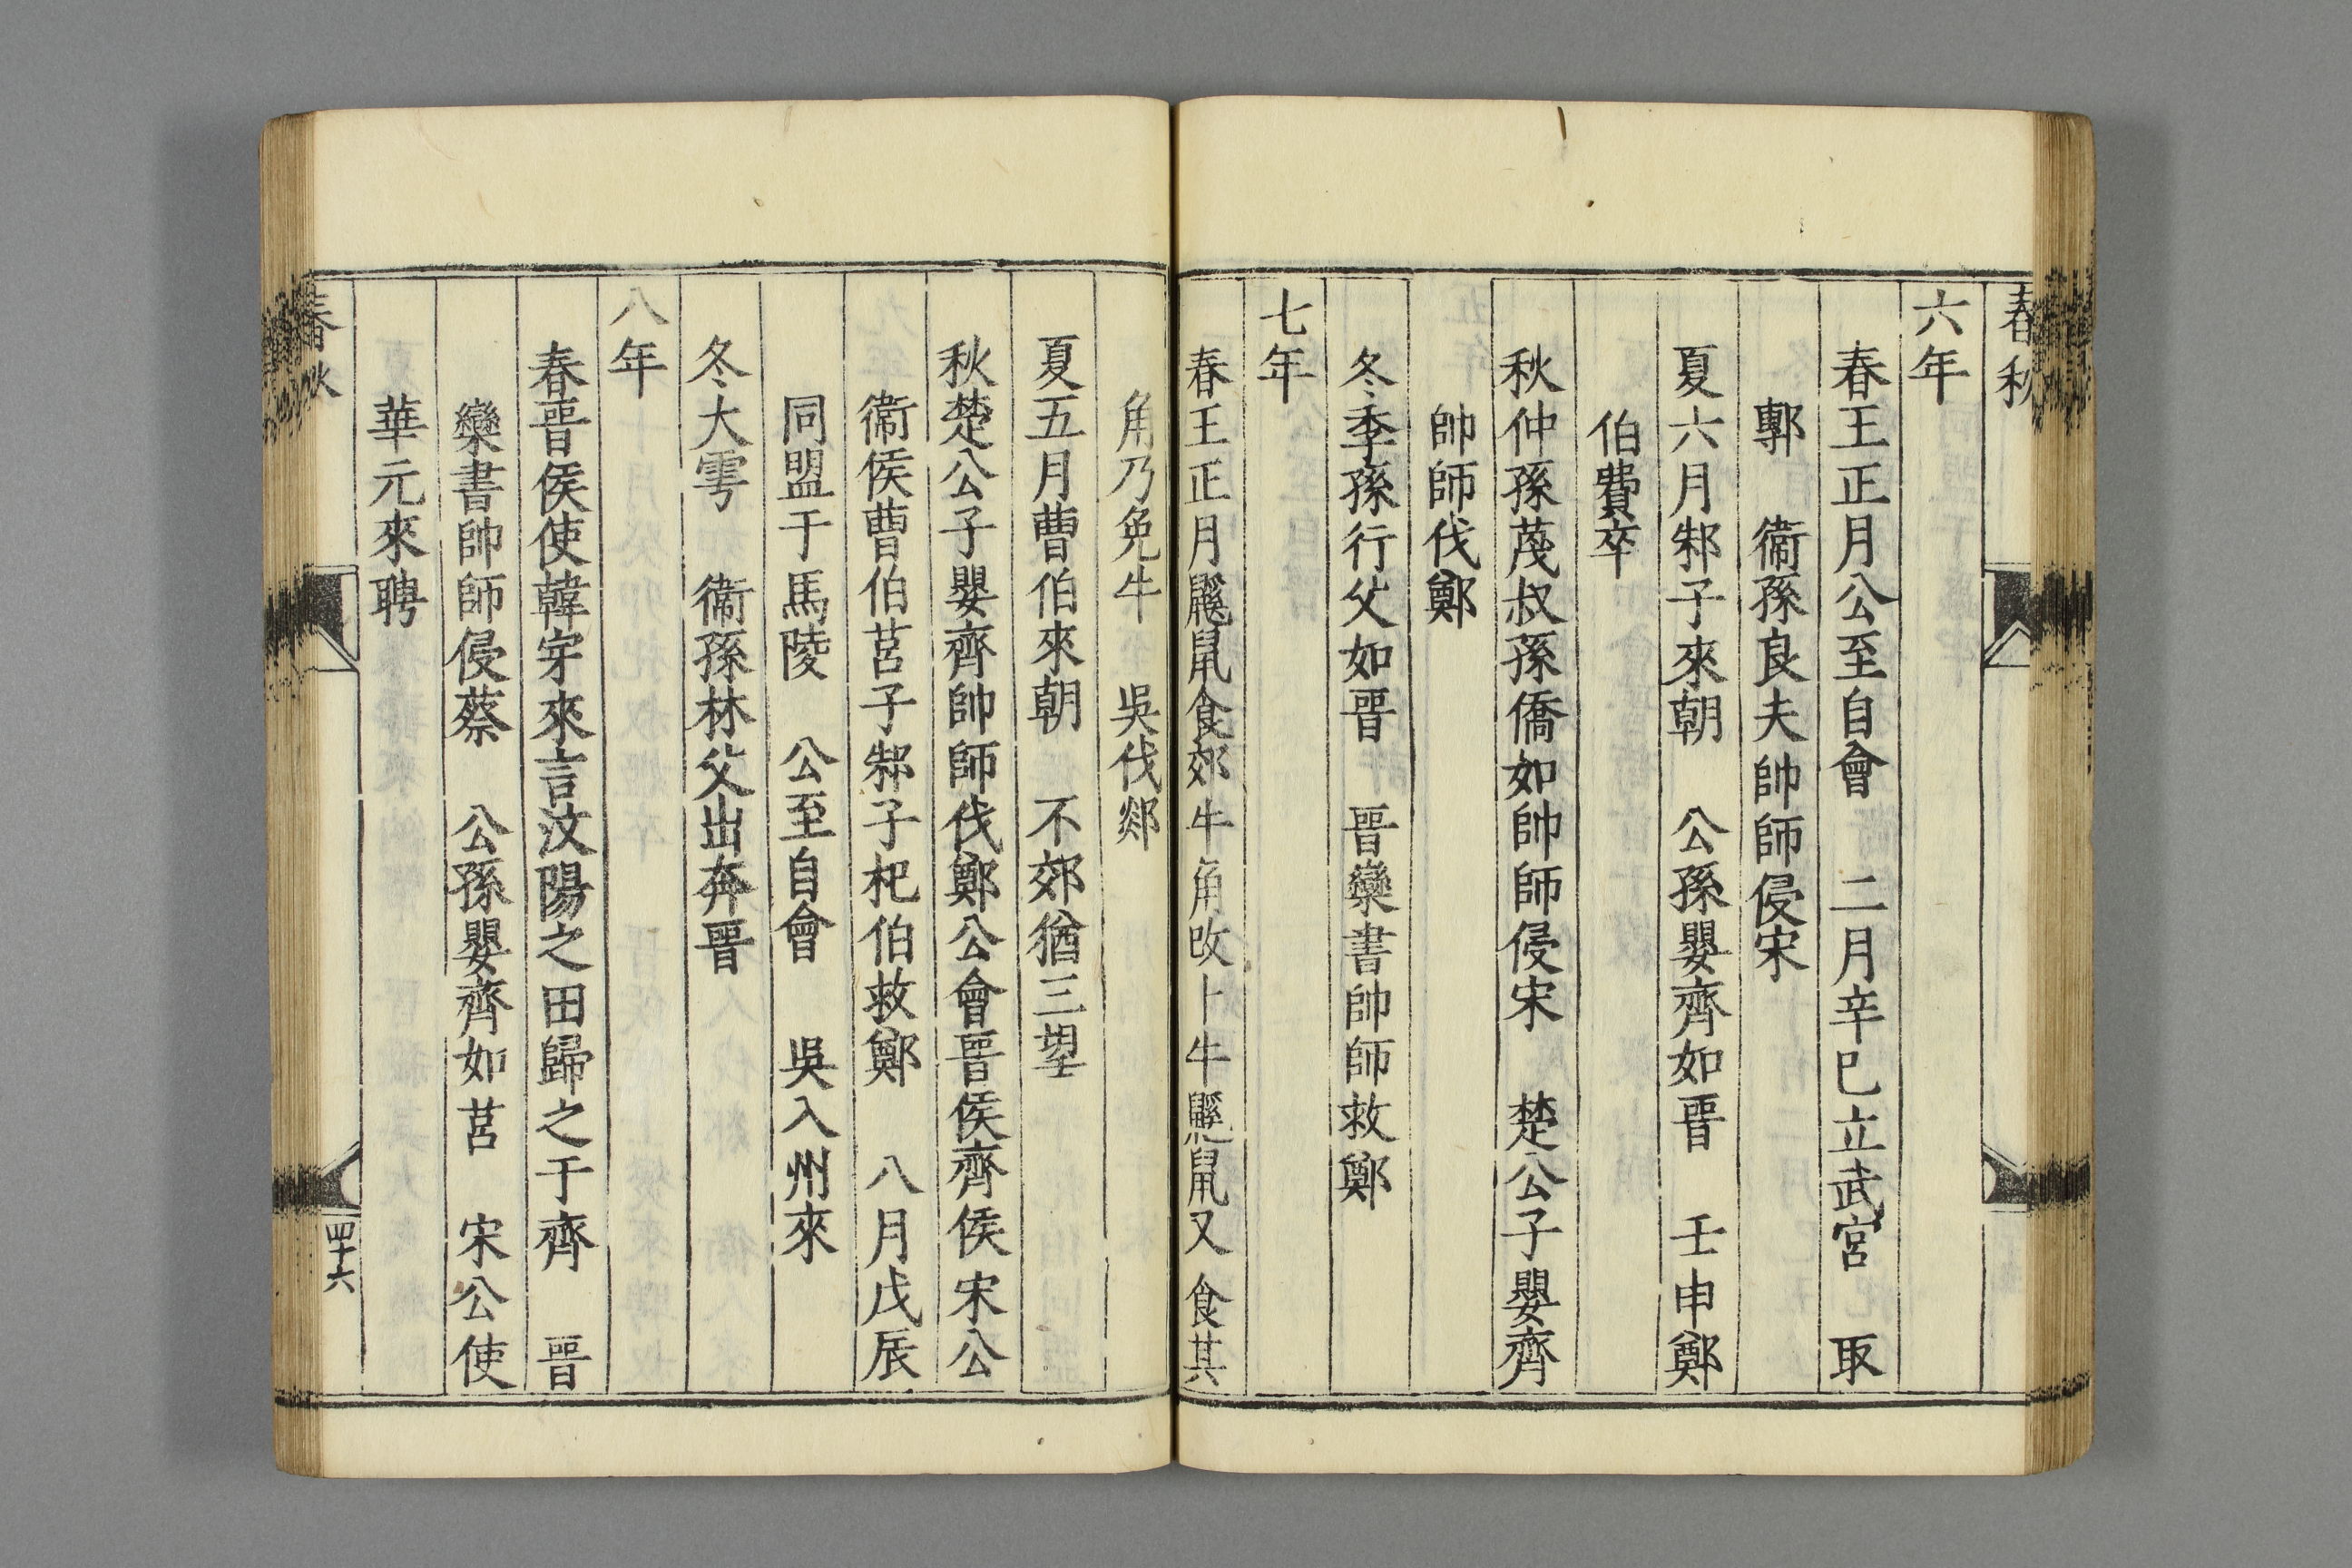 春秋
六年
春王正月公至自會　二月辛巳立武宮　取
鄟　衞孫良夫帥師侵宋
夏六月邾子來朝　公孫嬰齊如晉　壬申鄭
伯費卒
秋仲孫蔑叔孫僑如帥師侵宋　楚公子嬰齊
帥師伐鄭
冬季孫行父如晉　晉欒書帥師救鄭
七年
春王正月鼷鼠食郊牛角改卜牛鼷鼠又食其
角乃免牛　吳伐郯
夏五月曹伯來朝　不郊猶三望
秋楚公子嬰齊帥師伐鄭公會晉侯齊侯宋公
衞侯曹伯莒子邾子杞伯救鄭　八月戊辰
同盟于馬陵　公至自會　吳入州來
冬大雩　衞孫林父出奔晉
八年
春晉侯使韓穿來言汶陽之田歸之于齊　晉
欒書帥師侵蔡　公孫嬰齊如莒　宋公使
華元來聘
春秋
四十六